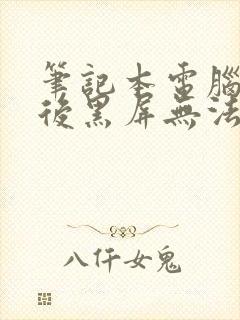 筆記本電腦
後黑屏無法
八仟女鬼